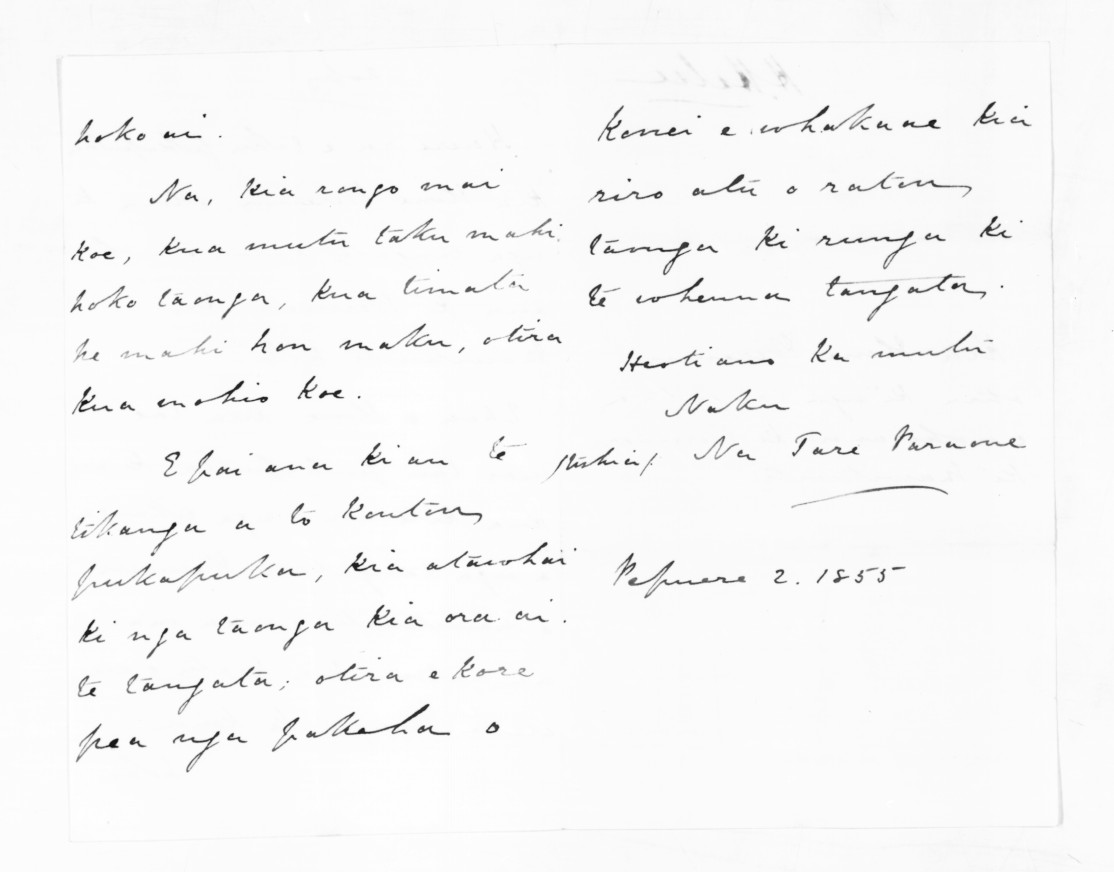 hoko ai.
Na, kia rongo mai
koe, kua mutu taku mahi
hoko taonga, kua timata
he mahi hou maku, otira
kua mohio koe.
E pai ana ki au te
tikanga a to koutou
pukapuka, kia atawhai
ki nga taonga kia ora ai.
te tangata; otira e kore
pea nga pakeha o
Konei e whakaae kia
riro atu o ratou
taonga ki runga ki
te whenua tangata.
Heoti ano Ka mutu
Naku
Na Tare Paraone
Pepuere 2. 1855